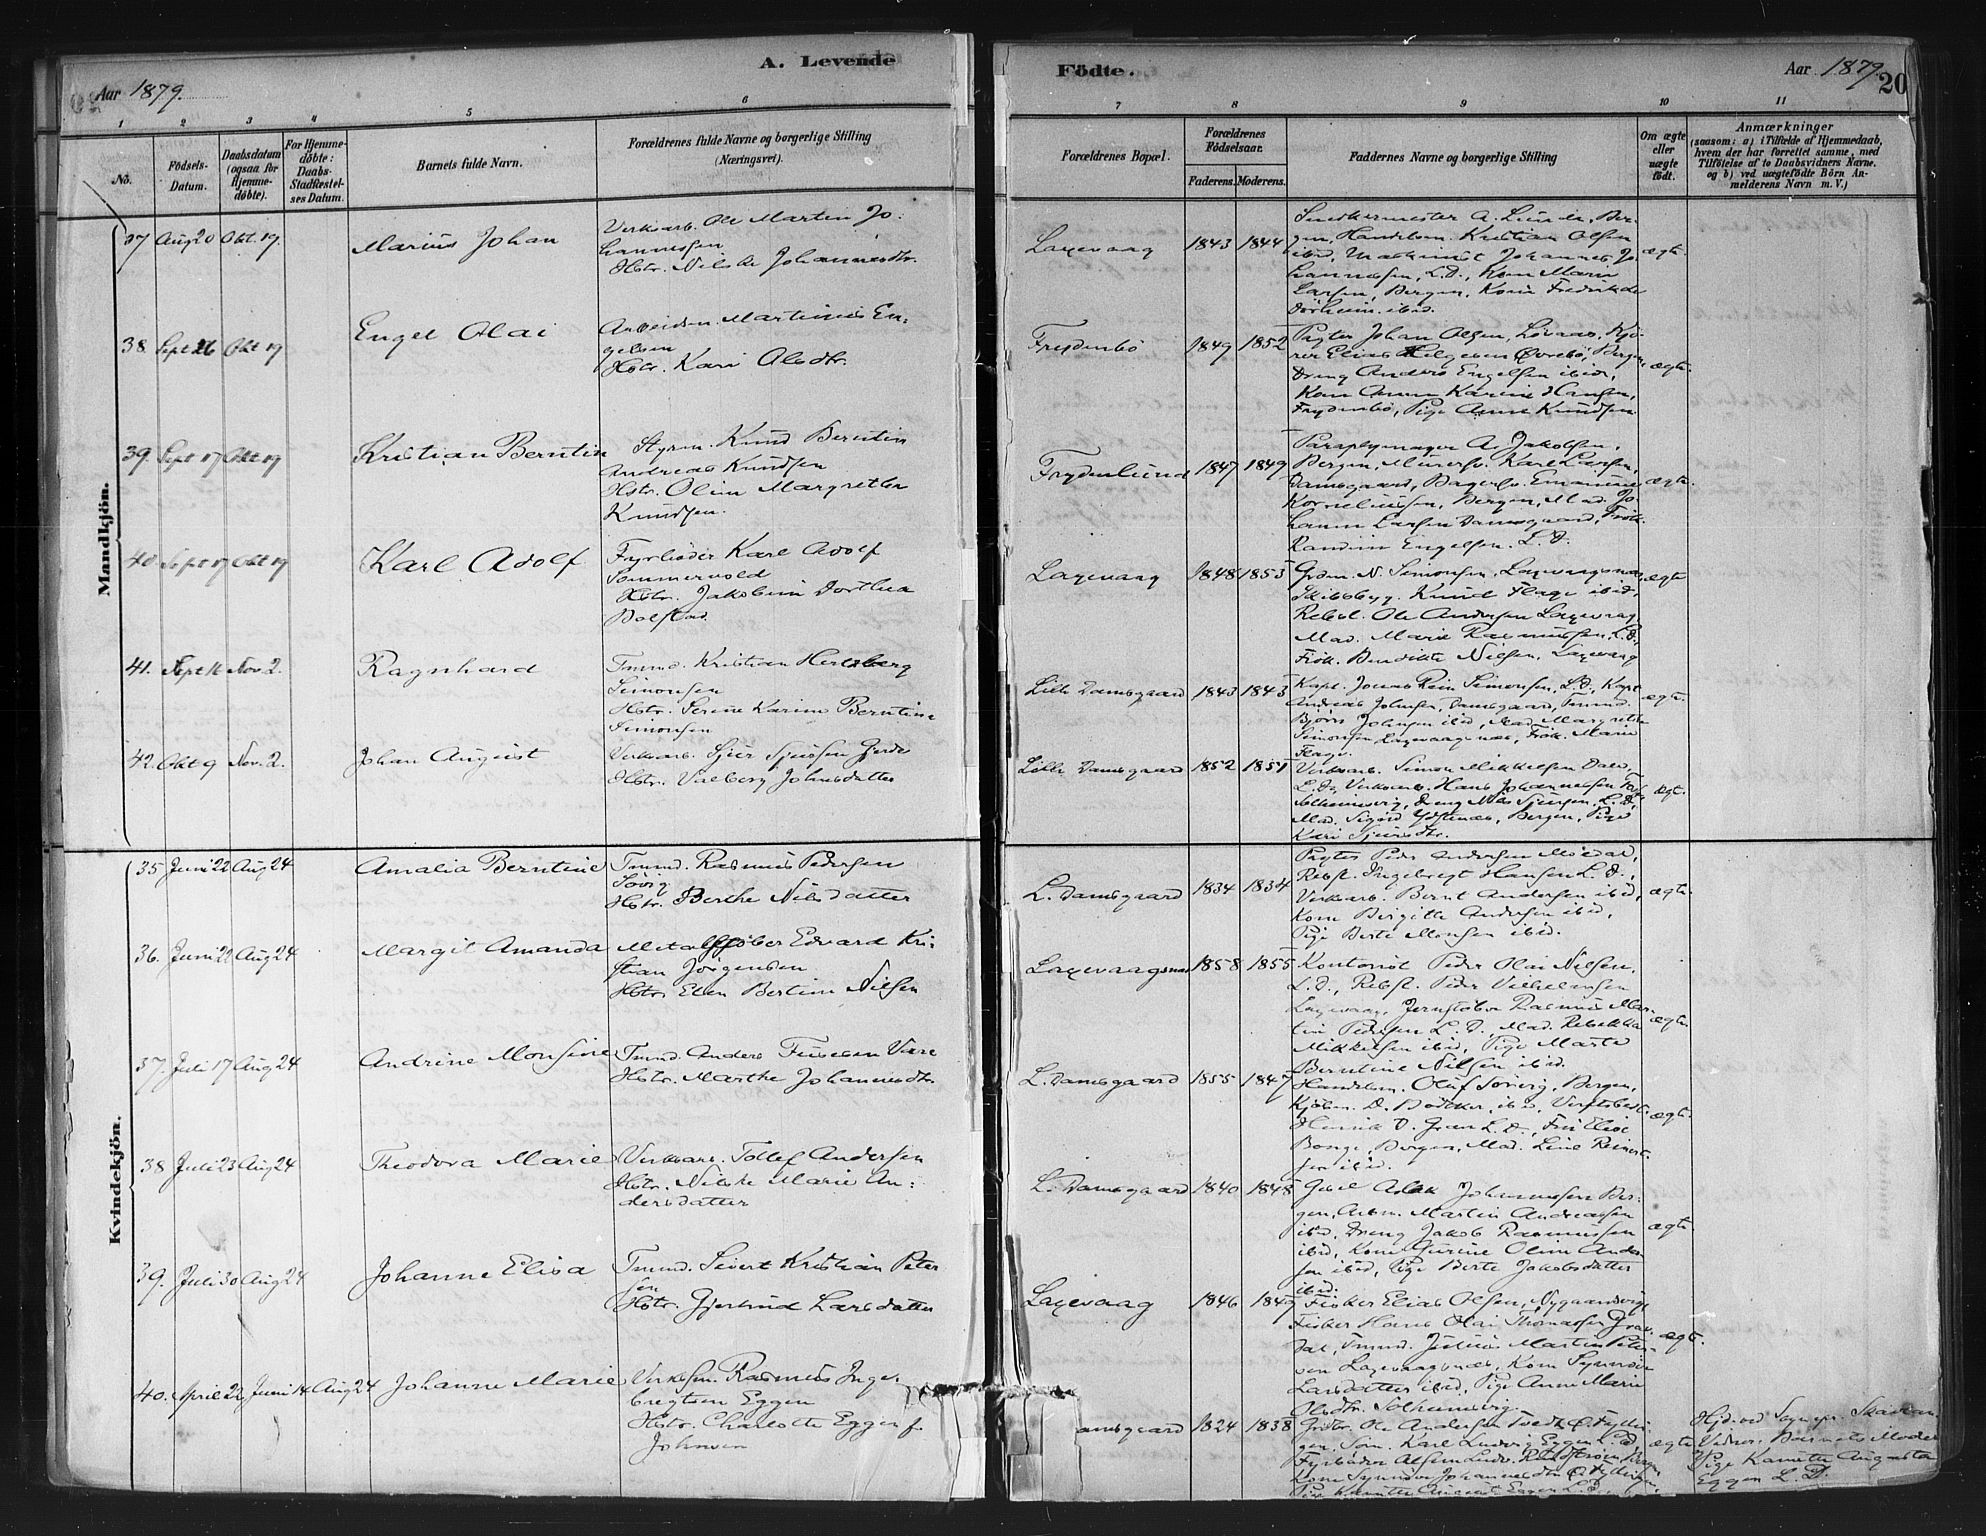 A. Levende
Födte.
Aar 1879.
Aar 1879.
20
1 2 3 4 5 6 7 8 9 10 11
No.
Födsels-
Datum.
Daabsdatum
(ogsaa for
Hjemme-
döbte).
For Hjemme-
döbte:
Daabs-
Stadfæstel-
ses Datum.
Barnets fulde Navn.
Forældrenes fulde Navne og borgerlige Stilling
(Næringsvei).
Forældrenes Bopæl.
Forældrenes
Födselsaar.
Faderens. Moderens.
Faddernes Navne og borgerlige Stilling
Om ægte
eller
uægte
födt.
Anmærkninger
(saasom: a) i Tilfælde af Hjemmedaab,
hvem der har forrettet samme, med
Tilföielse af to Daabsvidners Navne.
og b) ved uægtefödte Börn An-
melderens Navn m. V.)
Mandkjön.
37 Aug 20 Okt. 19. Marius Johan
Verksarb. Ole Martin Jo-
hannessen
Hstr. Nilske Johannesdtr.
Laxevaag 1843 1844
Snedkermester A. Lunde, Ber-
gen, Handelsm. Kristian Olsen
ibid, Maskinist Johannes Jo-
hannessen, L. D., Kone Marie
Larsen, Bergen, Kone Fredrikke
ibid.
ægte.
38. Sept 26 Okt 19 Engel Olai
Arbeidsm. Martinus En-
gelsen
Hstr. Kari Olsdtr.
Frydenbö 1849 1852
Pagter Johan Olsen, Lövaas, Kjö-
rer Elias Helgesen Øvrebö, Bergen,
Dreng Anders Engelsen ibid,
Kone Anna Karine Hansen,
Frydenbö, Pige Anne Knudsen
ægte.
39. Sept 17 Okt 19 Kristian Berntin
Styrm. Knud Berntin
Andreas Knudsen
Hstr. Oline Margrethe
Knudsen.
Frydenlund 1847 1849
Paraplymager A. Jakobsen,
Bergen, Murersv. Karl Larsen,
Damsgaard, Bagersv. Emanuel
Korneliussen, Bergen, Mad. Jo-
hanne Larsen Damsgaard, Frök.
Randine Engelsen. L. D.
ægte.
40 Sept 17 Okt 19 Karl Adolf
Fyrböder Karl Adolf
Sommervold
Hstr. Jakobine Dorthea
Bolstad.
Laxevaag 1848 1853
N. Simonsen, Laxevaagsnæs,
Skibsbyg. Knud Flage ibid,
Rebsl. Ole Andersen Laxevaag
Mad. Marie Rasmussen, L. D.
Frök. Benedikte Nilsen, Laxevaag
ægte
41. Sept 16 Nov. 2. Ragnhard
Tmmd. Kristian Hertzberg
Simonsen
Hstr. Serine Karine Berntine
Simonsen
Lille Damsgaard 1843 1843
Kapt. Jonas Rein Simonsen, L. D., Kapt.
Andreas Johnsen, Damsgaard, Tmmd.
Björn Johnsen ibid, Mad. Margrethe
Simonsen Laxevaagsnæs, Frök. Marie
Flage.
ægte.
42. Okt 9 Nov. 2. Johan August
Verksarb. Sjur Sjursen Gjerde
Hstr. Valborg Johnsdatter
Lille Damsgaard 1852 1851
Verksarb. Simon Mikkelsen Dale,
L. D., Verksarb. Hans Johannessen
Solheimsvig, Dreng Nils Sjursen, L. D.,
Mad. Sigrid Bergen, Pige
Kari Sjursdtr.
ægte.
Kvindekjön.
35 Juni 22 Aug 24 Amalia Berntine
Tmmd. Rasmus Pedersen
Sörvig
Hstr. Berthe Nilsdatter
L. Damsgaard 1834 1834
Pagter Peder Andersen
Rebsl. Ingebregt Hansen L. D.,
Verksarb. Bernt Andersen ibid,
Kone Birgitte Andersen ibid,
Pige Berte Monsen ibid.
ægte.
36. Juni 22 Aug 24 Margit Amanda
Metalstöber Edvard Kri-
stian Jörgensen
Hstr. Elen Bertine Nilsen
Laxevaagsnæs 1858 1855
Kontorist Peder Olai Nilsen,
L. D., Rebsl. Peder Vilhelmsen
Laxevaag, Jernstöber Rasmus Mar-
tin Pedersen L. D., Mad. Rebekka
Mikkelsen ibid, Pige Marte
Berntine Nilsen ibid.
ægte.
37. Juli 17 Aug 24 Andrine Monsine
Tmmd. Anders
Hstr. Marthe Johannesdtr.
L. Damsgaard 1855 1847
Handelsm. Oluf Sörvig, Bergen,
Kjöbm. D. Bödtker, ibid, Verftsbest.
Henrik D. L. D., Fru Elise
Bergen, Mad. Line Reinert-
sen ibid.
ægte.
38 Juli 23 Aug 24 Theodora Marie
Verksarb. Tollef Andersen
Hstr. Nilske Marie An-
dersdatter
L. Damsgaard 1840 1848
Johannessen Ber-
gen, Arbm. Martin Andreassen
ibid, Dreng Jakob Rasmussen
ibid, Kone Gurine Oline Ander-
sen ibid, Pige Berte Jakobsdatter
ibid.
ægte
39. Juli 30 Aug 24 Johanne Elisa
Tmmd. Sivert Kristian Peter
sen
Hstr. Gjertrud Larsdatter
Laxevaag 1846 1849
Fisker Elias Olsen, Nygaardsvig,
Fisker Hans Olai Thomassen Grav-
dal, Tmmd. Julius Martin Peter-
sen Laxevaagsnæs, Kone Synneve
Larsdatter ibid, Pige Anne Marie
Olsdtr. Solheimsvig.
ægte.
40. April 22 Juni 14 Aug 24 Johanne Marie
Rasmus Inge-
bregtsen Eggen
Hstr. Charlotte Eggen f.
Johnsen
amsgaard 1824 1838
Grdbr. Ole Andersen Tvedt Ø. Fyllin-
gen, Söm. Karl Ludvig Eggen L. D.,
Fyrböder Bergen
Kone Synneve Johannesdtr Ø. Fyllingen,
Pige Kamitte Augusta Eggen L. D.
ægte
Hjd. ved Sognepr.
Vidner: Barnets Moder
Pige Kamitte Augusta
Eggen L. D.